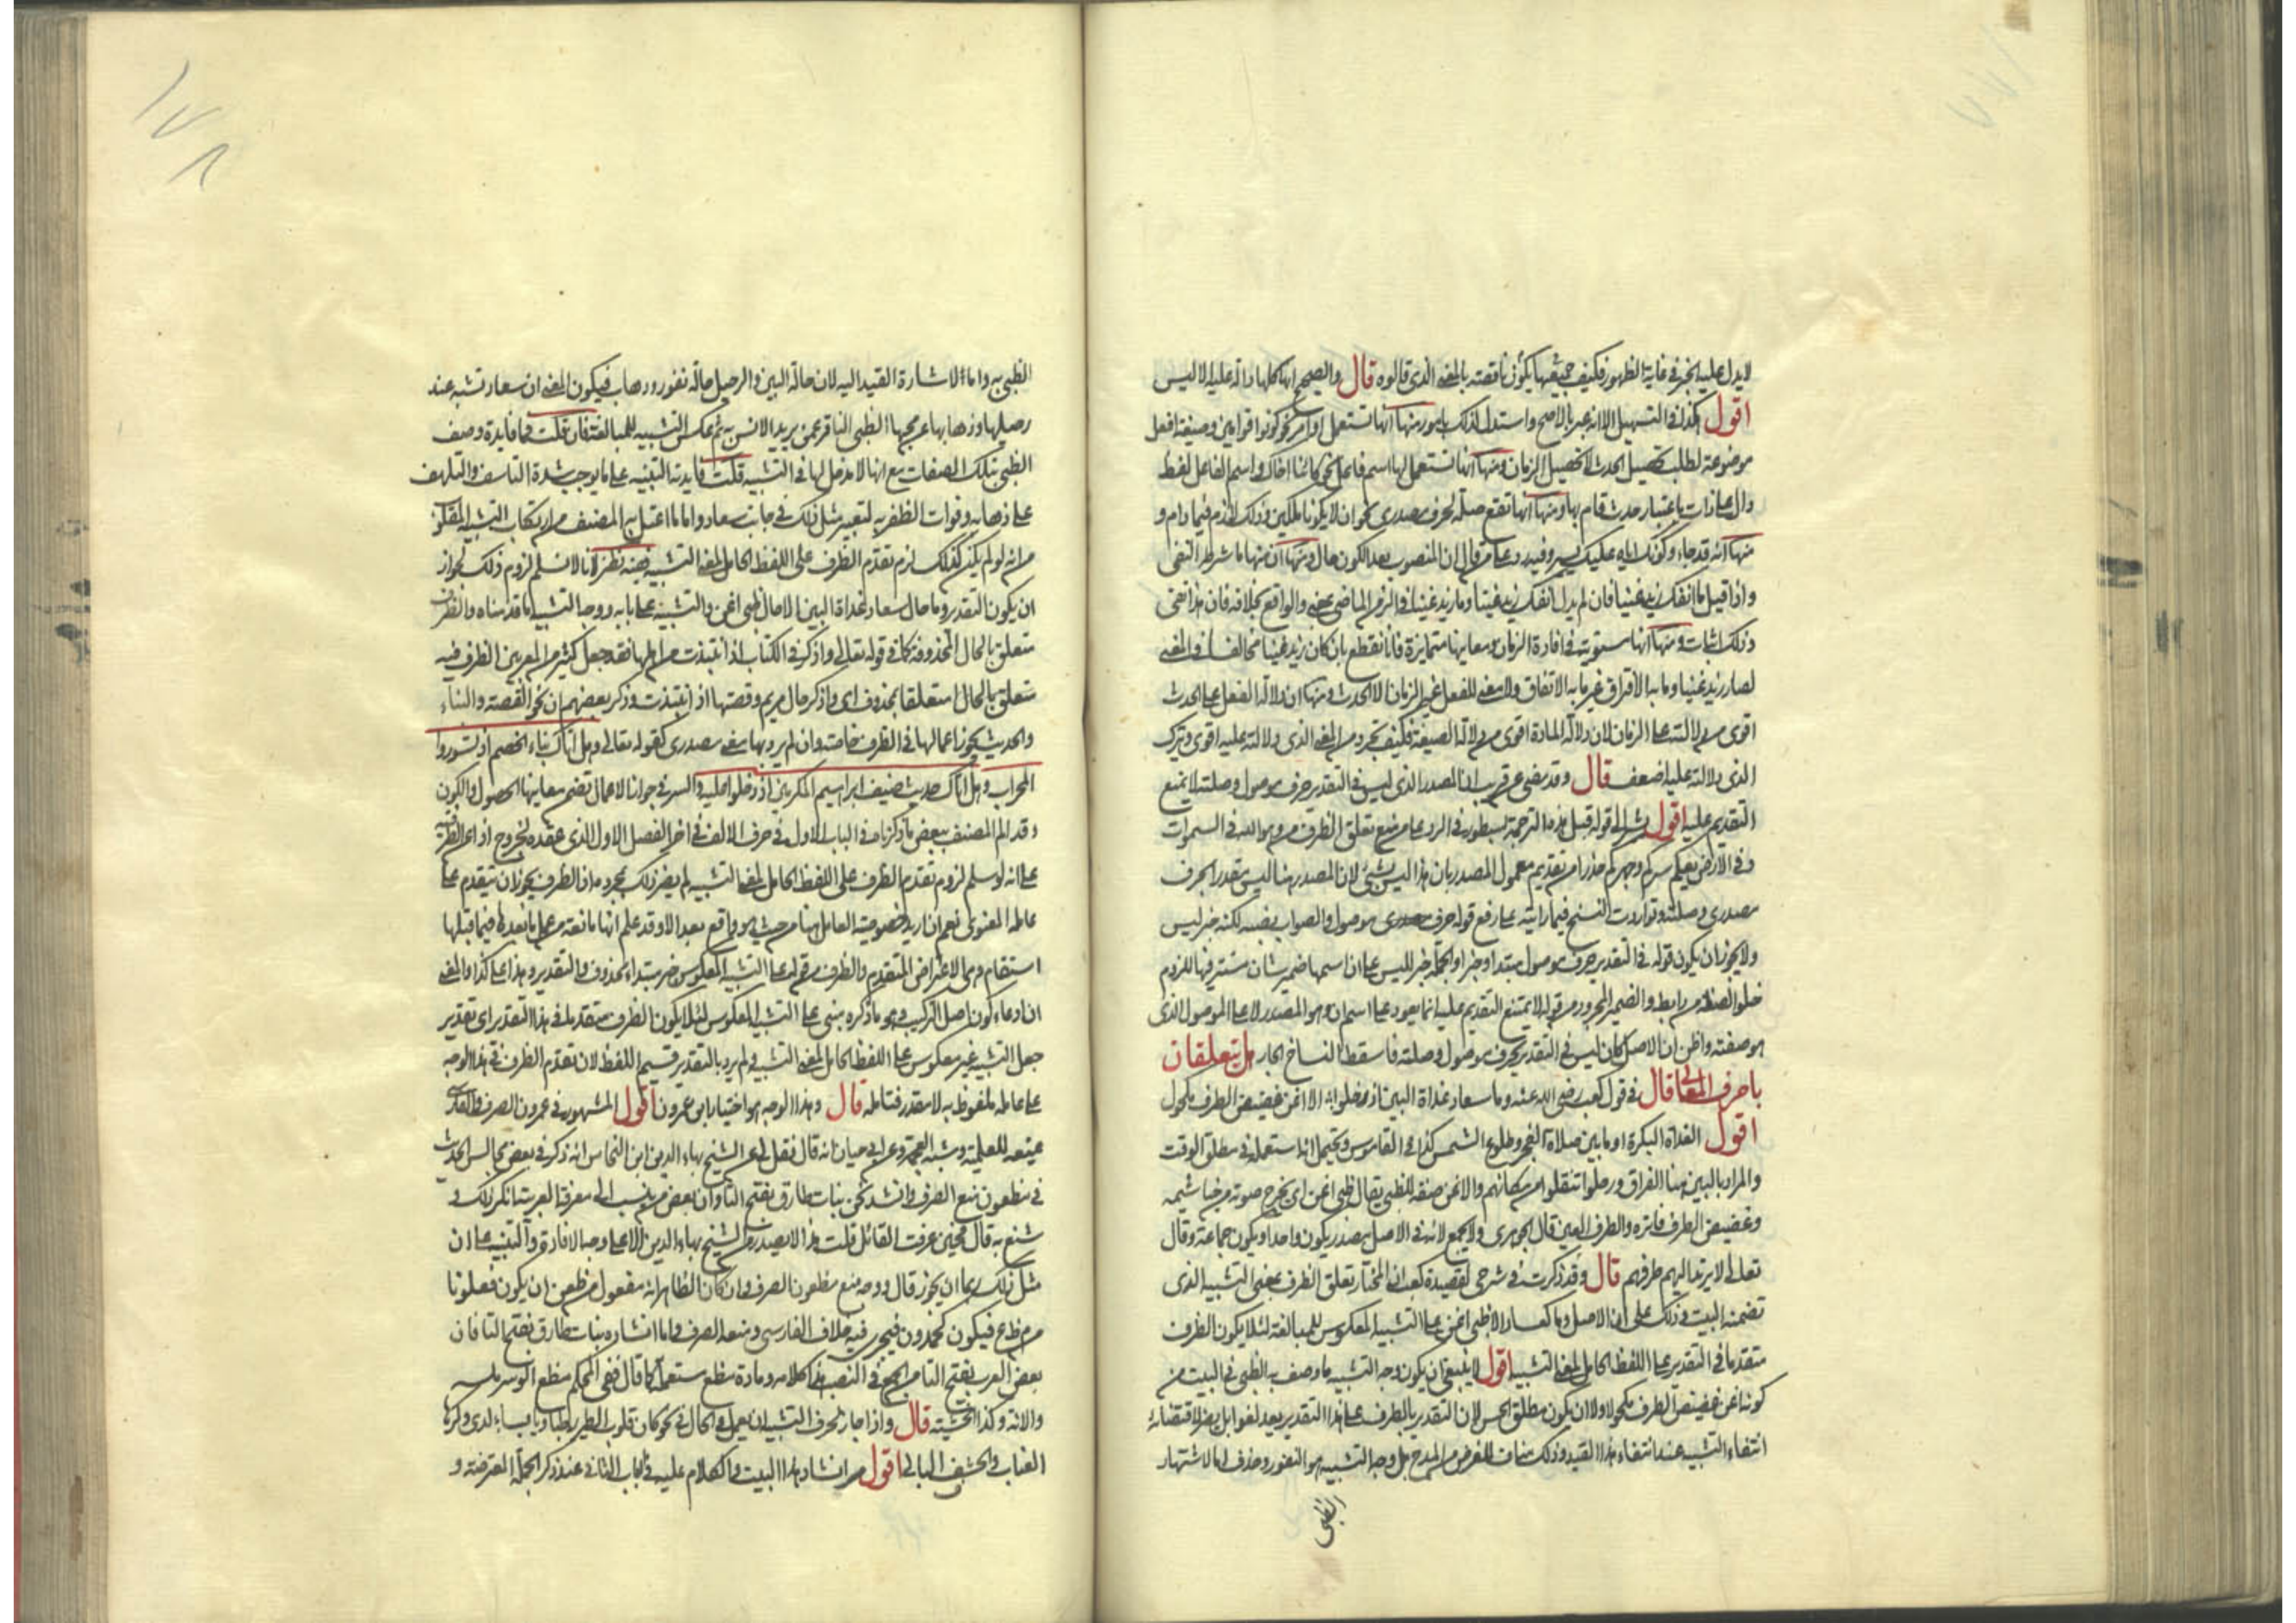 لا يدل عليه الخبر في غاية الظهور فكيف جميعها يكون ناقصة بالمعنى الذي قالوه قال والصحيح انها كلها دالة عليه الا ليس
اقول كذا في التسهيل الا انه عبر بالاصح واستدل لذلك بامور منها انها تستعمل اوامر نحو كونوا قوامين وصيغة افعل
موضوعة لطلب تحصيل الحدث لا تحصيل الزمان ومنها انها تستعمل لها اسم فاعل نحو كائنا اخاك واسم الفاعل لفظ
دال على ذات باعتبار حدث قام بها ومنها انها تقع صلة لحرف مصدري نحو ان لا يكونا ملكين وذلك لازم فيما دام و
منها انه قد جاء وكونك اياه عليك يسير وفيه رد على من قال ان المنصوب بعد الكون حال ومنها ان منها ما شرطه النفي
واذا قيل ما انفك زيد غنيا فان لم يدل انفك زيد غنيا وما زيد غنيا في الزمن الماضي والواقع بخلافه فان هذا نفي
وذلك اثبات ومنها انها مستوية في افادة الزمان ومعانيها متمايزة فانا نقطع بان كان زيد غنيا مخالف في المعنى
لصار زيد غنيا وما به الافتراق غير ما به الاتفاق ولا معنى للفعل غير الزمان الا الحدث ومنها ان دلالة الفعل على الحدث
اقوى من دلالته على الزمان لان دلالة المادة اقوى من دلالة الصيغة فكيف تجرد من المعنى الذي دلالته عليه اقوى وترك
الذي دلالته عليه اضعف قال وقد مضى عن قريب ان المصدر الذي ليس في التقدير حرف موصول وصلته لا يمتنع
التقديم عليه اقول يشير الى قوله قبل هذه الترجمة بسطور في الرد على من منع تعلق الظرف من وهو الله في السموات
وفي الارض يعلم سركم وجهركم حذرا من تقديم معمول المصدر بان هذا ليس بشيء لان المصدر هنا ليس بتقدير حرف
مصدري وصلته وتواردت النسخ فيما رايته على رفع قوله حرف موصول والصواب نصبه لكنه خبر ليس
ولا يجوز ان يكون قوله في التقدير حرف موصول مبتدا وخبرا والجملة خبر لليس على ان اسمها ضمير شان مستتر فيها للزوم
خلو الصلة من رابط والضمير المجرور من قوله لا يمتنع التقديم عليه انما يعود على اسم ان وهو المصدر لا على الموصول الذي
هو صفته واظن ان الاصل كان ليس في التقدير بحرف موصول وصلته فاسقط الناسخ الجار هل يتعلقان
باحرف المعاني قال في قول كعب رضي الله عنه وما سعاد غداة البين اذ رحلوا الا اغن غضيض الطرف مكحول
اقول الغداة البكرة او ما بين صلاة الفجر وطلوع الشمس كذا في القاموس ويحتمل انه استعمله في مطلق الوقت
والمراد بالبين هنا الفراق ورحلوا انتقلوا من مكانهم والاغن صفة للظبي يقال ظبي اغن اي يخرج صوته من خياشيمه
وغضيض الطرف فاتره والطرف العين قال الجوهري ولا يجمع لانه في الاصل مصدر يكون واحدا ويكون جماعة وقال
تعالى لا يرتد اليهم طرفهم قال وقد ذكرت في شرحي لقصيدة كعب ان المختار تعلق الظرف بمعنى التشبيه الذي
تضمنه البيت وذلك على ان الاصل وما كسعاد الا ظبي اغن على التشبيه المعكوس للمبالغة لئلا يكون الظرف
متقدما في التقدير على اللفظ الحامل لمعنى التشبيه اقول لا ينبغي ان يكون وجه التشبيه ما وصف به الظبي في البيت من
كونه اغن غضيض الطرف مكحولا ولا ان يكون مطلق الحسن لان التقدير بالظرف على هذا التقدير يعد لغوا بل يضر لاقتضائه
انتفاء التشبيه عند انتفاء هذا القيد وذلك مناف للغرض من المدح بل وجه التشبيه هو النفور وحذف اما لاشتهار
الظبي
الظبي به واما لاشارة القيد اليه لان حالة البين والرحيل حالة نفور وذهاب فيكون المعنى ان سعاد تشبه عند
رحيلها وذهابها عن محبها الظبي النافر عمن يريد الانس به ثم عكس التشبيه للمبالغة فان قلت فما فايدة وصف
الظبي بتلك الصفات مع انها لا مدخل لها في التشبيه قلت فايدته التنبيه على ما يوجب شدة التاسف والتلهف
على ذهابه وفوات الظفر به لتعبير مثل ذلك في جانب سعاد واما ما اعتل به المصنف من ارتكاب التشبيه المقلوب
من انه لو لم يكن كذلك لزم تقدم الظرف على اللفظ الحامل لمعنى التشبيه ففيه نظر لانا لا نسلم لزوم ذلك لجواز
ان يكون التقدير وما حال سعاد غداة البين الا حال ظبي اغن والتشبيه على بابه ووجه التشبيه ما قدمناه والظرف
متعلق بالحال المحذوفة كما في قوله تعالى واذكر في الكتاب اذ انتبذت من اهلها فقد جعل كثير من المعربين الظرف فيه
متعلق بالحال متعلقا بمحذوف اي واذكر حال مريم وقصتها اذ انتبذت وذكر بعضهم ان نحو القصة والنباء
والحديث يجوز اعمالها في الظرف خاصة وان لم يرد بها معنى مصدري كقوله تعالى وهل اتاك نباء الخصم اذ تسوروا
المحراب وهل اتاك حديث ضيف ابراهيم المكرمين اذ دخلوا عليه والسر في جواز الاعمال تضمن معانيها الحصول والكون
وقد الم المصنف ببعض ما ذكرناه في الباب الاول في حرف الالف في اخر الفصل الاول الذي عقده لخروج اذا عن الظرفية
على انه لو سلم لزوم تقدم الظرف على اللفظ الحامل لمعنى التشبيه لم يضر ذلك بمجرده اذ الظرف يجوز ان يتقدم على
عامله المعنوي نعم ان اريد خصوصية العامل هنا من حيث هو واقع بعد الا وقد علم انها مانعة من عمل ما بعدها فيما قبلها
استقام وهي الاعتراض المتقدم والظرف من قوله على التشبيه المعكوس خبر مبتداء محذوف والتقدير وهذا على كذا والمعنى
ان ادعاء كون اصل التركيب وهو ما ذكره مبني على التشبيه المعكوس لئلا يكون الظرف متقدما في هذا التقدير اي تقدير
جعل التشبيه غير معكوس على اللفظ الحامل لمعنى التشبيه ولم يرد بالتقدير قسيم اللفظ لان تقدم الظرف في هذا الوجه
على عامله ملفوظ به لا مقدر فتامله قال وهذا الوجه هو اختيار ابن عمرون اقول المشهور في عمرون الصرف والفارسي
يمنعه للعلمية وشبه العجمة وعن ابي حيان انه قال نقل لي عن الشيخ بهاء الدين ابن النحاس انه ذكر في بعض مجالس الحديث
في مظعون منع الصرف وانشد نحن بنات طارق بفتح التا وان بعض من ينسب الى معرفة العربية انكر ذلك و
شنع به قال فحين عرفت القائل قلت هذا لا يصدر من الشيخ بهاء الدين الا على وجه الافادة والتنبيه على ان
مثل ذلك ربما ان يجوز قال ووجه منع مظعون الصرف وان كان الظاهر انه مفعول من ظعن ان يكون فعلونا
من مظع فيكون كحمدون فيجري فيه خلاف الفارسي ومنعه الصرف واما انشاده بنات طارق بفتح التا فان
بعض العرب يفتح التا من الجمع في النصب هذا كلامه ومادة مظع مستعملة كما قال ففي المحكم مظع الوتر ملسه
والانه وكذا الخشبة قال واذا جاز لحرف التشبيه ان يعمل في الحال في نحو كان قلوب الطير رطبا ويابسا لدى وكرها
العناب والحشف البالي اقول مر انشاد هذا البيت والكلام عليه في الباب الثاني عند ذكر الجملة المعترضة و